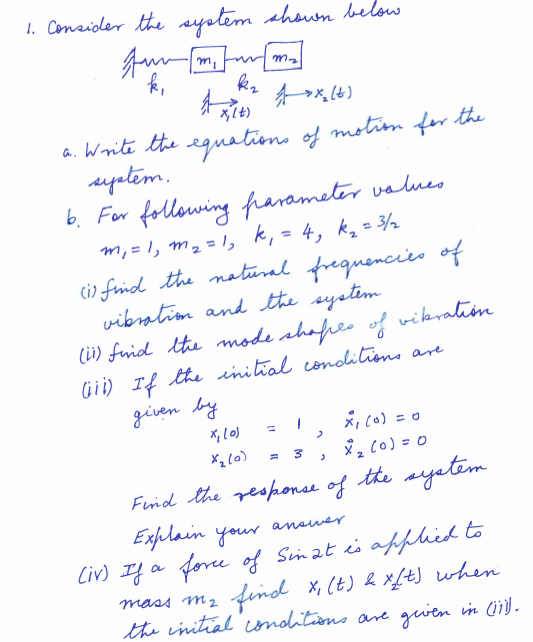 1. Consider the system shown below
m₁ m₂
k₁ k₂
x₁(t) x₂(t)
a. Write the equations of motion for the
system.
b. For following parameter values
m₁ = 1, m₂ = 1, k₁ = 4, k₂ = 3/2
(i) find the natural frequencies of
vibration and the system
(ii) find the mode shapes of vibration
(iii) If the initial conditions are
given by
x₁(0) = 1, ẋ₁(0) = 0
x₂(0) = 3, ẋ₂(0) = 0
Find the response of the system
Explain your answer
(iv) If a force of Sin 2t is applied to
mass m₂ find x₁(t) & x₂(t) when
the initial conditions are given in (iii).